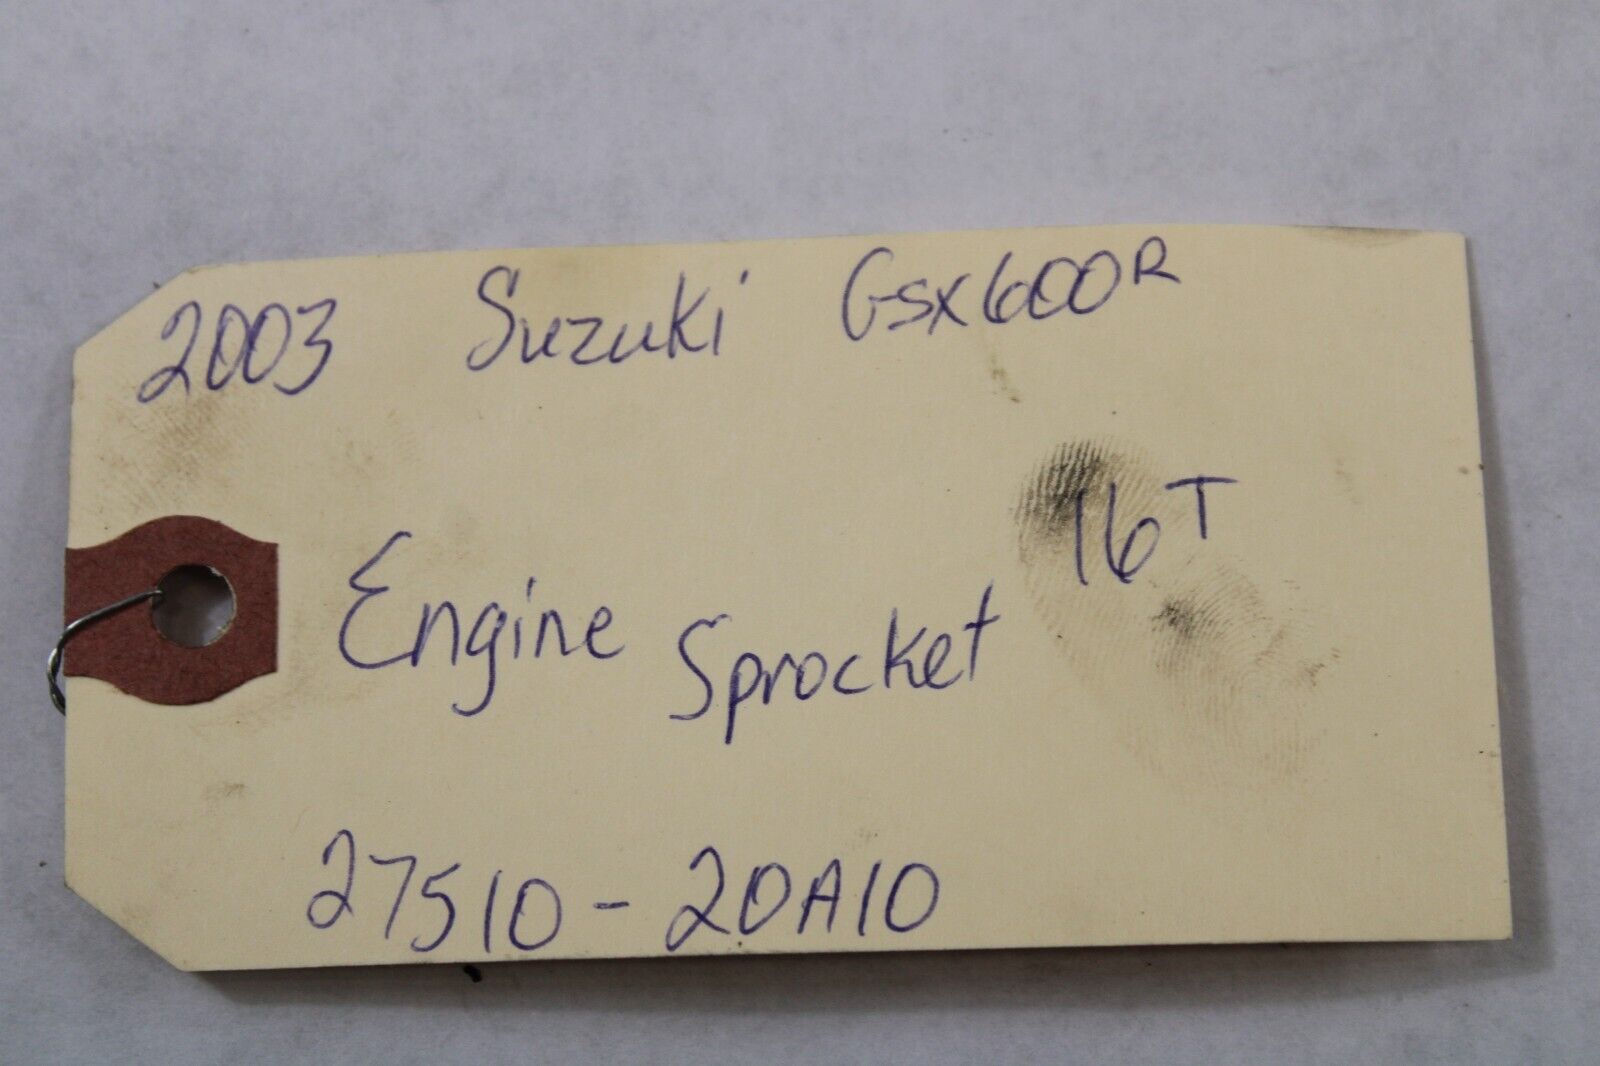 2003 Suzuki GSX600R
Engine Sprocket 16T
27510-20A10